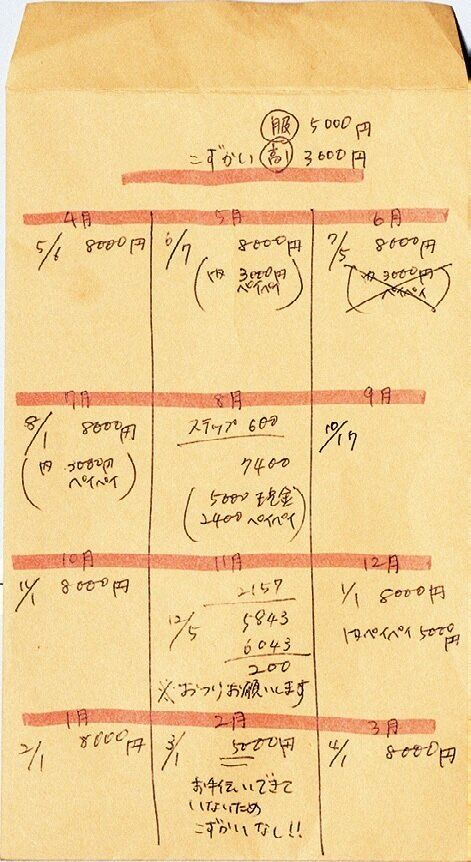 服 5000円
こずかい 高 3000円
4月 5月 6月
5/6 8000円
6/7 8000円
(内 3000円
ペイペイ)
7/5 8000円
(内 3000円
ペイペイ)
7月 8月 9月
8/1 8000円
(内 3000円
ペイペイ)
ステップ 600
7400
(5000 現金
2400 ペイペイ)
10/17
10月 11月 12月
11/1 8000円
2157
12/5 5843
6043
200
※おつりお願いします
1/1 8000円
内ペイペイ 5000円
1月 2月 3月
2/1 8000円
3/1 5000円
お手伝いできて
いないため
こずかいなし!!
4/1 8000円